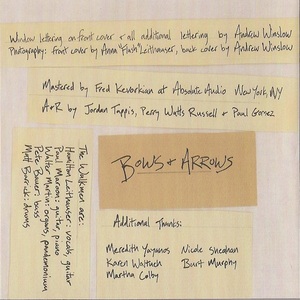 Window lettering on front cover + all additional lettering by Andrew Winslow
Photography: front cover by Anna "Flash" Leithauser, back cover by Andrew Winslow
Mastered by Fred Kevorkian at Absolute Audio New York, NY
A+R by Jordan Tappis, Perry Watts Russell + Paul Gorsez
The Walkmen are:
Hamilton Leithauser: vocals, guitar
Paul Maroon: guitar, piano
Walter Martin: organs, pandemonium
Pete Bauer: bass
Matt Barrick: drums
BOWS + ARROWS
Additional Thanks:
Meredith Nicole Sheahan
Karen Waltuch Burt Murphy
Martha Colby